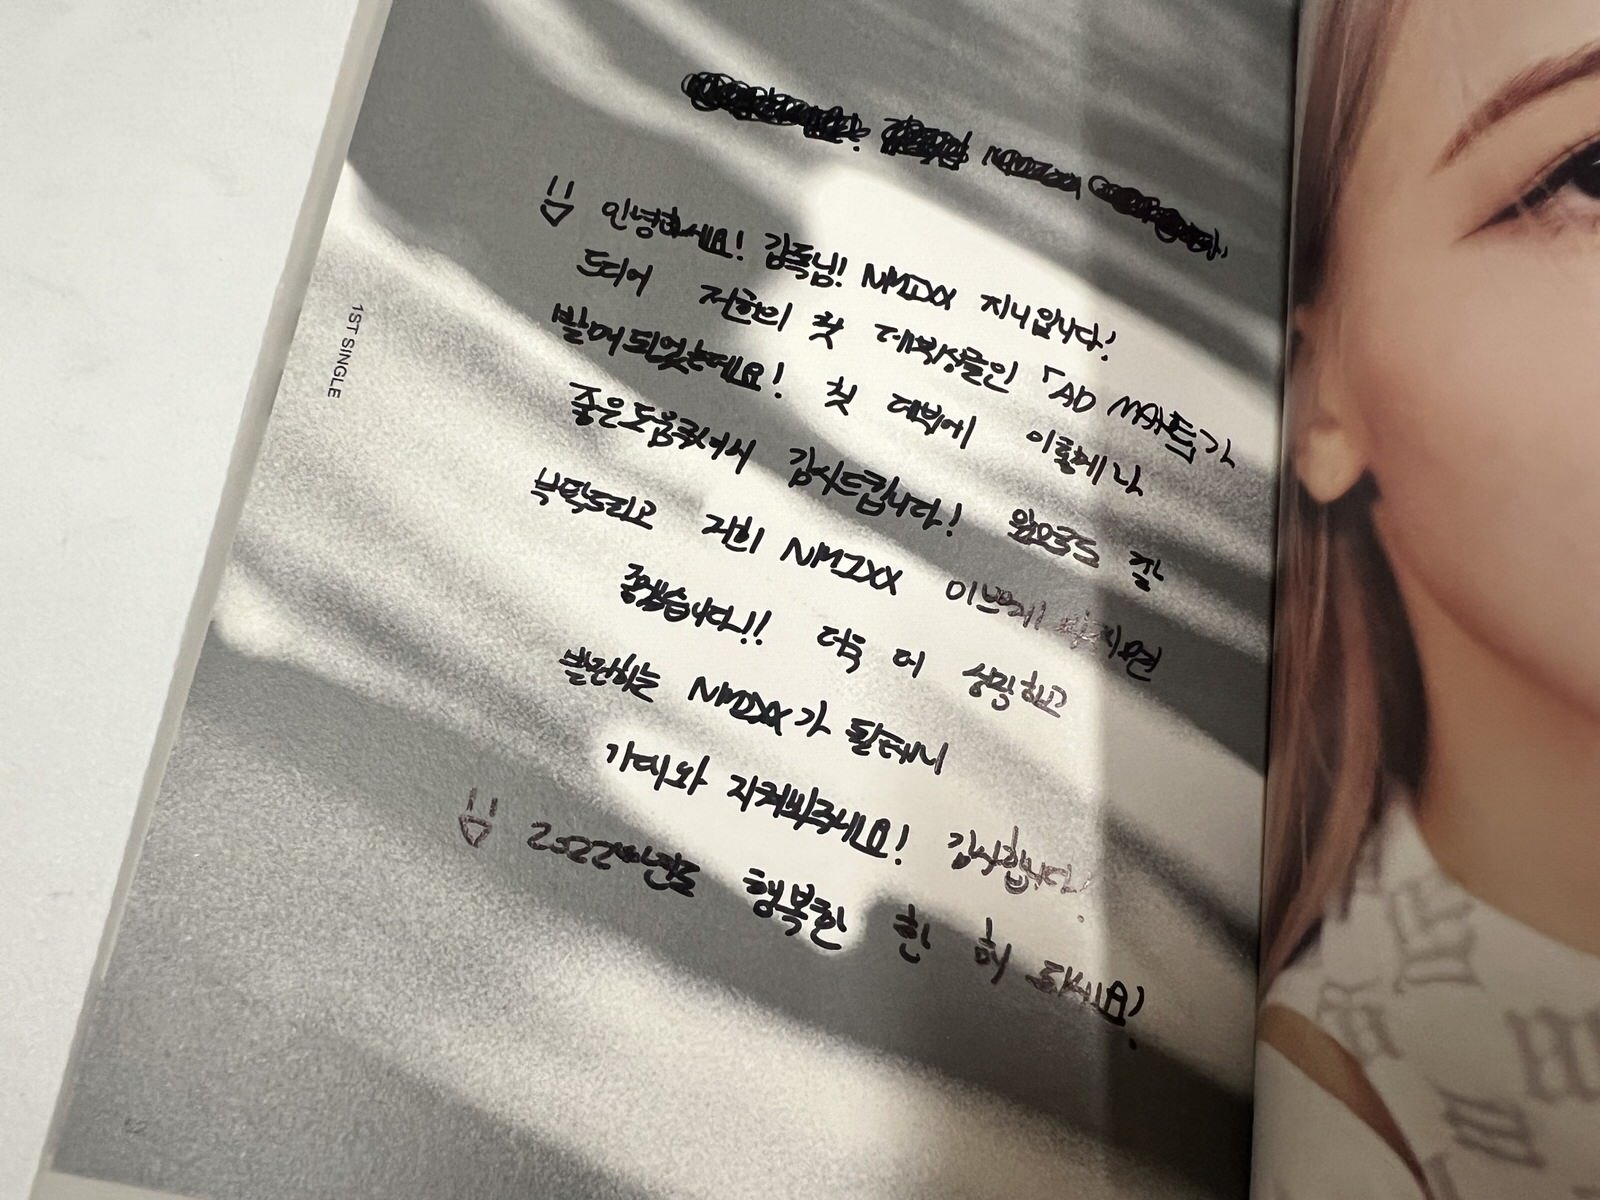 안녕하세요! 감독님! NMIXX 지니입니다!
드디어 저희의 첫 데뷔싱글인 「AD MARE」가
발매되었는데요! 첫 데뷔에 이렇게나
좋은도움주셔서 감사드립니다! 앞으로도 잘
부탁드리고 저희 NMIXX 이쁘게 봐주시면
좋겠습니다!! 더욱 더 성장하고
발전하는 NMIXX가 될테니
기대와 지켜봐주세요! 감사합니다!
2022년도 행복한 한 해 되세요!
1ST SINGLE